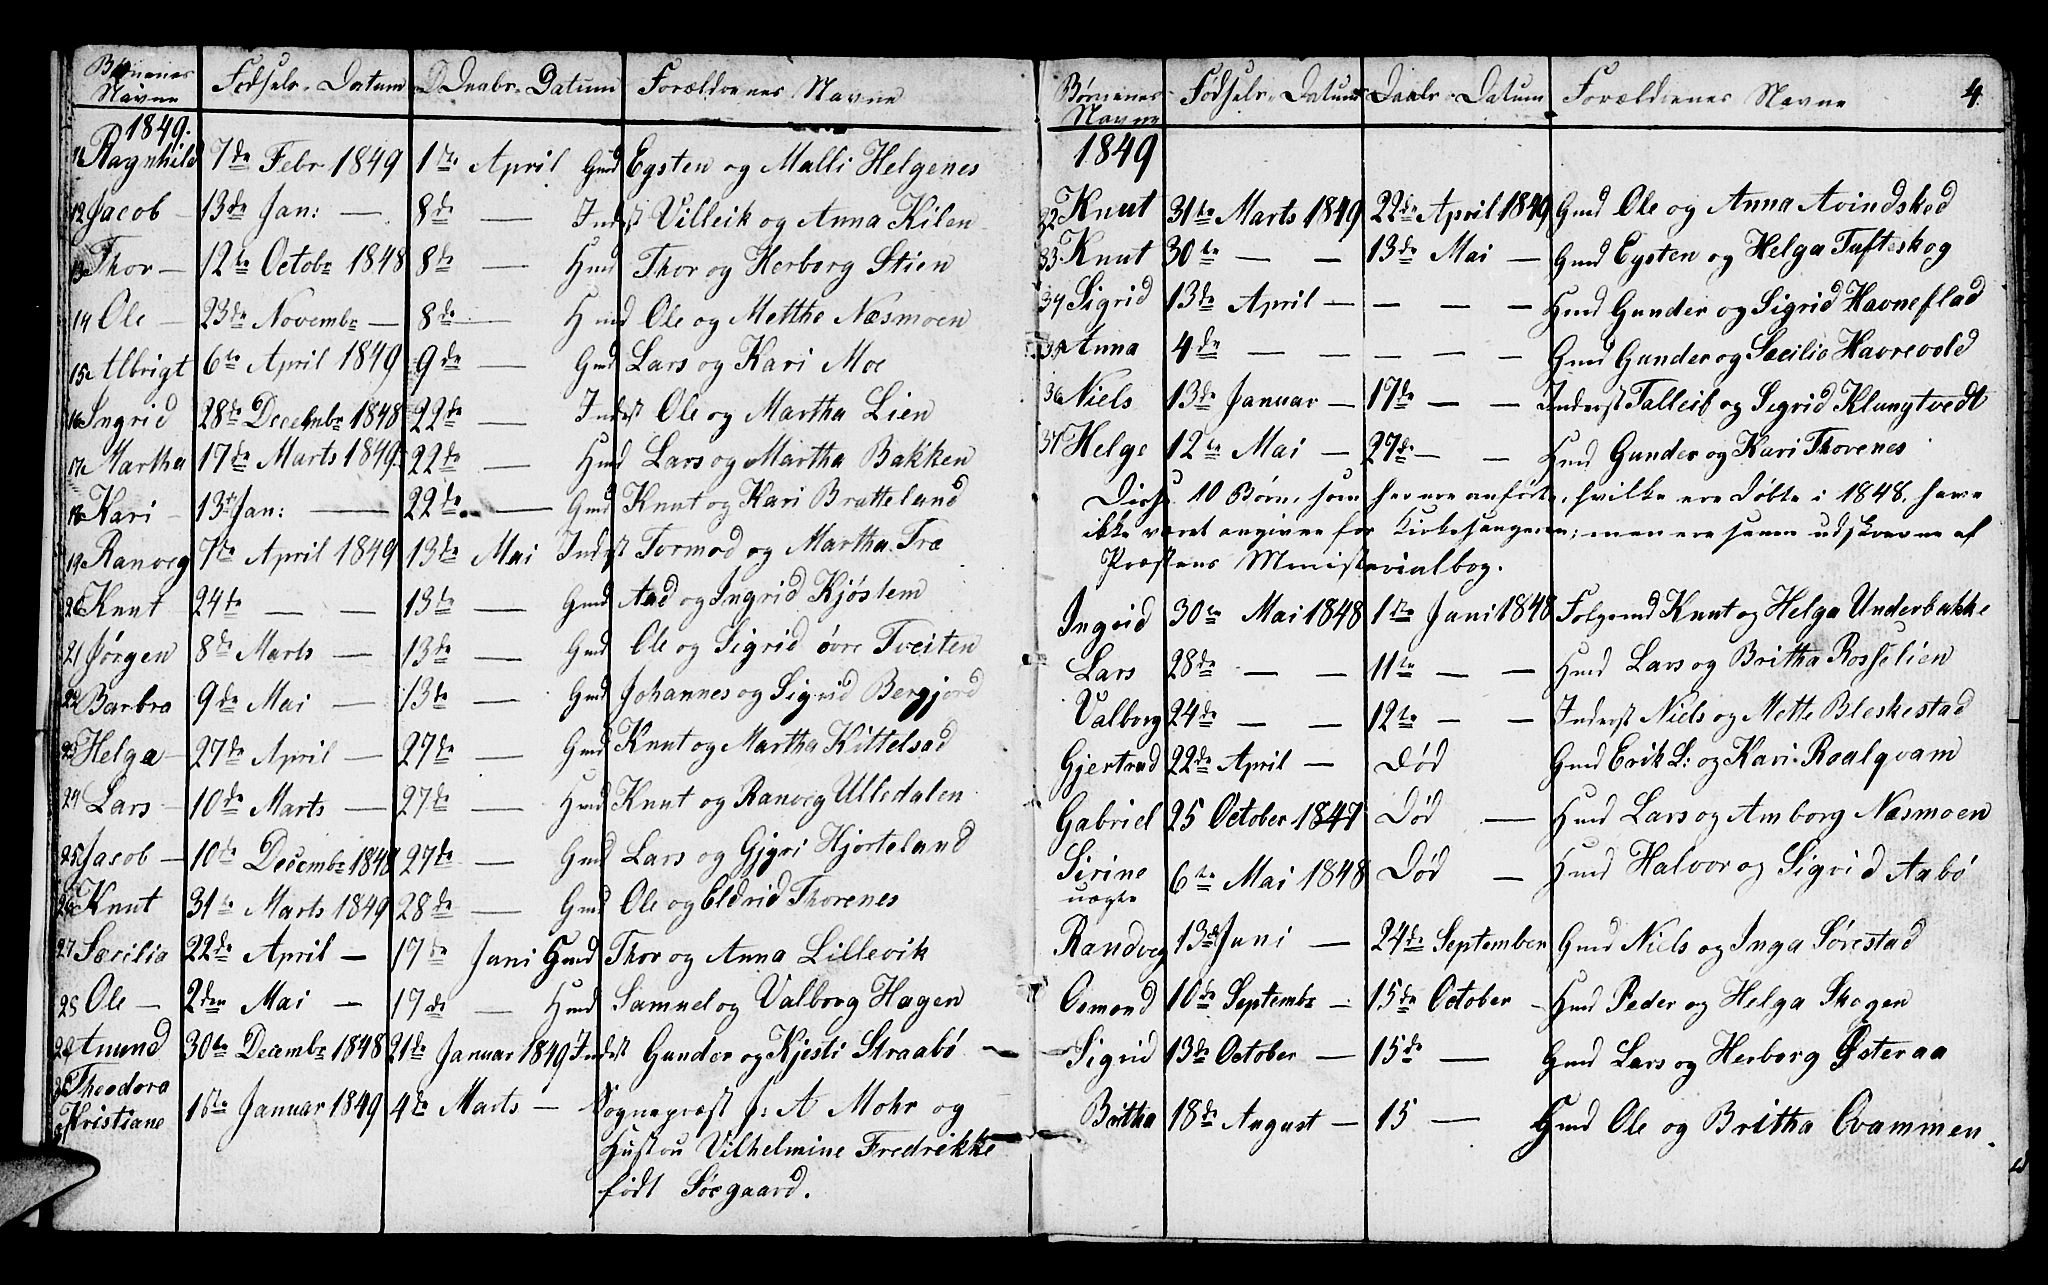 Børnenes Navne Fødsels-Datum Daabs-Datum Forældrenes Navne
1849.
11 Ragnhild 7de Febr 1849 1ste April Gmd Egsten og Malli Helgenes
12 Jacob — 13de Jan: — 8de — Inderst Villeik og Anna Kilen
13 Thor — 12te Octobr 1848 8de — Hmd Thor og Herborg Stien
14 Ole — 23de Novembr — 8de — Hmd Ole og Metthe Næsmoen
15 Albrigt 6te April 1849 9de — Gmd Lars og Kari Moe
16 Ingrid 28de Decembr 1848 22de — Inderst Ole og Martha Lien
17 Martha 17de Marts 1849 22de — Hmd Lars og Martha Bakken
18 Kari — 13de Jan: — 22de — Gmd Knut og Kari Bratteland
19 Ranveg 7de April 1849 13de Mai Inderst Tormod og Martha Træ
20 Knut 24de — — 13de — Gmd Aad og Ingrid Kjøstem
21 Jørgen 8de Marts — 13de — Gmd Ole og Sigrid øvre Tveiten
22 Barbra 9de Mai — 13de — Gmd Johannes og Sigrid Bergjord
23 Helga — 27de April — 27de — Gmd Knut og Martha Kittelsad
24 Lars — 10de Marts — 27de — Hmd Knut og Ranveg Ulledalen
25 Jacob — 10de Decembr 1848 27de — Gmd Lars og Gjyri Hjorteland
26 Knut 31te Marts 1849 28de — Gmd Ole og Eldrid Thorenes
27 Sæcilia 22de April — 17de Juni Hmd Thor og Anna Lillevik
28 Ole — 2den Mai — 17de — Hmd Samuel og Valborg Hagen
29 Amund 30te Decembr 1848 21de Januar 1849 Inderst Gunder og Kjesti Straabø
Theodora
Kristiane 16te Januar 1849 4de Marts — Sognepræst J: A Mohr og
Hustru Vilhelmine Fredrikke
født Søegaard.
Børnenes Navne Fødsels-Datum Daabs-Datum Forældrenes Navne 4
1849
32 Knut 31te Marts 1849 22de April 1849 Gmd Ole og Anna Avindsked
33 Knut 30te — — 13de Mai — Gmd Egsten og Helga Tufteskog
34 Sigrid 13de April — — — — Hmd Gunder og Sigrid Havneflad
35 Anna 4de — — — — — Gmd Gunder og Sæcilie Havrevold
36 Niels 13de Januar — 17de — — Inderst Talleif og Sigrid Klungtvedt
37 Helge 12te Mai — 27de — — Hmd Gunder og Kari Thorenes
Disse 10 Børn, som her ere anførte, hvilke ere døbte i 1848, have
ikke været angivne for Kirkesangeren; men ere senere udskrevne af
Præstens Ministerialbog.
Ingrid 30te Mai 1848 1ste Juni 1848 Folgemd Knut og Helga Underbakke
Lars 28de — — 11te — — Hmd Lars og Britha Rosselien
Valborg 24de — — 12te — — Inderst Niels og Mette Bleskestad
Gjertrud 22de April — Død Gmd Erik L: og Kari Roalqvam
Gabriel 25 October 1847 Død — Hmd Lars og Amborg Næsmoen
Sirine
uægte 6te Mai 1848 Død — Hmd Halvor og Sigrid Aabø
Randveg 13de Juni — 24de September Gmd Niels og Inga Sørestad
Osmond 10de Septembr — 15de October — Hmd Peder og Helga Skogen
Sigrid 13de October — 15de — Gmd Lars og Herborg Østeraa
Britha 18de August — 15 — Gmd Ole og Britha Qvammen.